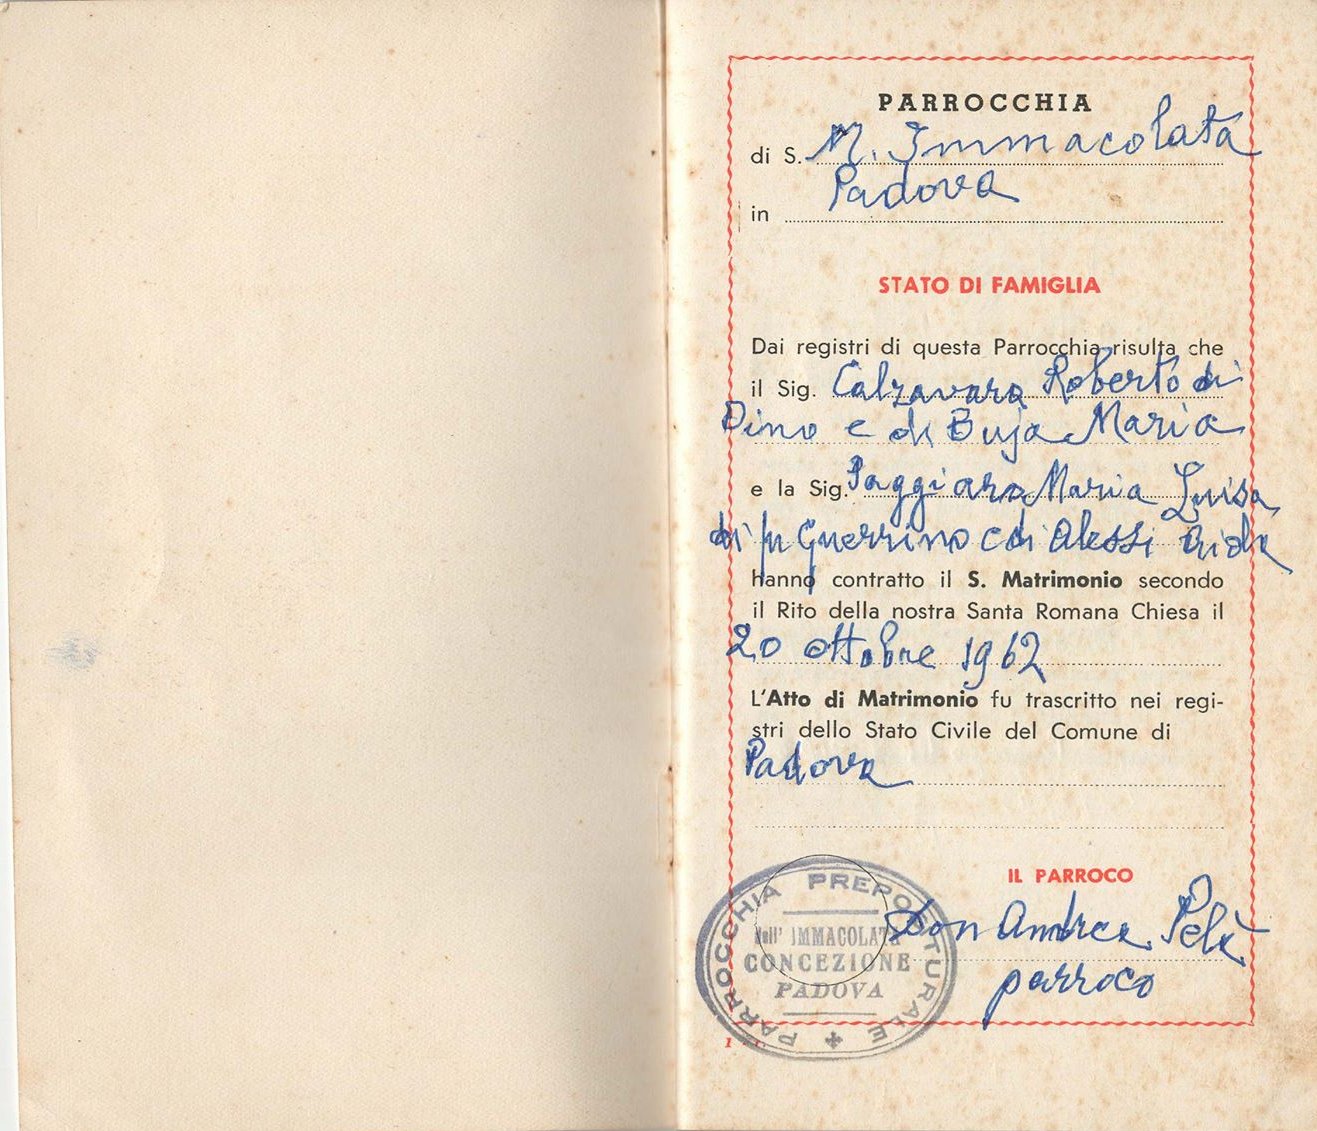 PARROCCHIA
di S. M. Immacolata
in Padova
STATO DI FAMIGLIA
Dai registri di questa Parrocchia risulta che
il Sig. Calzavara Roberto di
Dino e di Buja Maria
e la Sig. Paggiaro Maria Luisa
di fu Guerrino e di Alessi
hanno contratto il S. Matrimonio secondo
il Rito della nostra Santa Romana Chiesa il
20 ottobre 1962
L'Atto di Matrimonio fu trascritto nei regi-
stri dello Stato Civile del Comune di
Padova
IL PARROCO
Don Andrea Pelà
parroco
PARROCCHIA PREPOSITURALE
dell' IMMACOLATA
CONCEZIONE
PADOVA
1